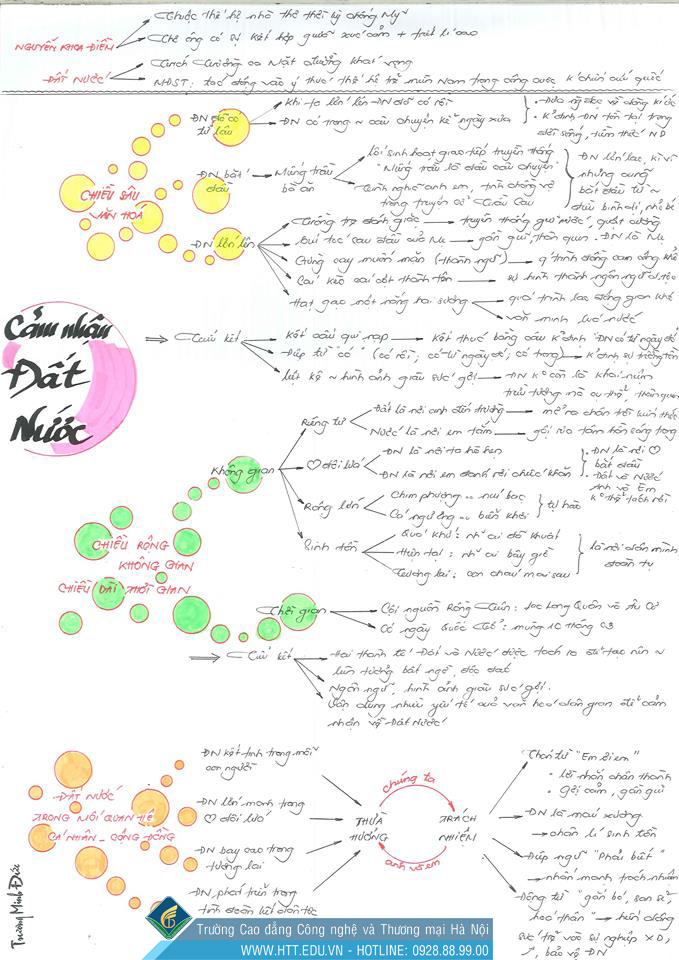 NGUYỄN KHOA ĐIỀM
Thuộc thế hệ nhà thơ thời kỳ chống Mỹ
Thơ ông có sự kết hợp giữa xúc cảm + triết lí
ĐẤT NƯỚC
Trích trường ca Mặt đường khát vọng
Cảm nhận
Đất
Nước
CHIỀU SÂU
VĂN HOÁ
ĐN đã có
từ lâu
Khi ta lớn lên ĐN đã có rồi
ĐN có trong ~ câu chuyện kể ngày xưa
ĐN bắt
đầu
Miếng trầu
bà ăn
Lối sinh hoạt giao tiếp truyền thống
"Miếng trầu là đầu câu chuyện"
Tình nghĩa anh em, tình chồng vợ
trong truyện cổ Trầu Cau
ĐN lớn lên
Trồng tre đánh giặc
truyền thống giữ nước, quật cường
Búi tóc sau đầu của Mẹ
gần gũi thân quen. ĐN là Mẹ
Gừng cay muối mặn (thành ngữ)
Cái kèo cái cột thành tên
sự hình thành ngôn ngữ d.tộc
Hạt gạo một nắng hai sương
quá trình lao động gian khổ
văn minh lúa nước
Tiểu kết
Kết cấu qui nạp
Kết thúc bằng câu k.định "ĐN có từ ngày đó"
Điệp từ "có" (có rồi, có từ ngày đó, có trong)
Liệt kê ~ hình ảnh giàu sức gợi
CHIỀU RỘNG
KHÔNG GIAN
CHIỀU DÀI THỜI GIAN
Không gian
Riêng tư
Đất là nơi anh đến trường
mở ra chân trời kiến thức
Nước là nơi em tắm
gợi sự tâm hồn trong
♡ đôi lứa
ĐN là nơi ta hò hẹn
ĐN là nơi em đánh rơi chiếc khăn
ĐN là nơi ♡
bắt đầu
Đất và Nước
Anh và Em
k° thể tách rời
Rộng lớn
Chim phượng .. núi bạc
Cá ngư ông .. biển khơi
tự hào
Sinh tồn
Quá khứ: những ai đã khuất
Hiện tại: những ai bây giờ
Tương lai: con cháu mai sau
là nơi dân mình
đoàn tụ
Thời gian
Cội nguồn Rồng Tiên: Lạc Long Quân và Âu Cơ
Có ngày Quốc Tổ: mùng 10 tháng 03
Tiểu kết
Hai thành tố Đất và Nước được tách ra để tạo nên ~
liên tưởng bất ngờ, độc đáo
Ngôn ngữ, hình ảnh giàu sức gợi.
Vận dụng nhiều yếu tố của văn hoá dân gian để cảm
nhận về Đất Nước
ĐẤT NƯỚC
TRONG MỐI QUAN HỆ
CÁ NHÂN _ CỘNG ĐỒNG
ĐN kết tinh trong mỗi
con người
ĐN lớn mạnh trong
♡ đôi lứa
ĐN bay cao trong
tương lai
ĐN phát triển trong
tình đoàn kết dân tộc
THỪA
HƯỞNG
chúng ta
anh và em
TRÁCH
NHIỆM
Thán từ "Em ơi em"
lời nhắn chân thành
Gợi cảm, gần gũi
ĐN là máu xương
chân lí sinh tồn
Điệp ngữ "Phải biết"
nhấn mạnh trách nhiệm
Động từ "gắn bó, san sẻ,
hoá thân"
sức trẻ vào sự nghiệp XD,
bảo vệ ĐN
Trương Minh Đức
Trường Cao đẳng Công nghệ và Thương mại Hà Nội
WWW.HTT.EDU.VN - HOTLINE: 0928.88.99.00